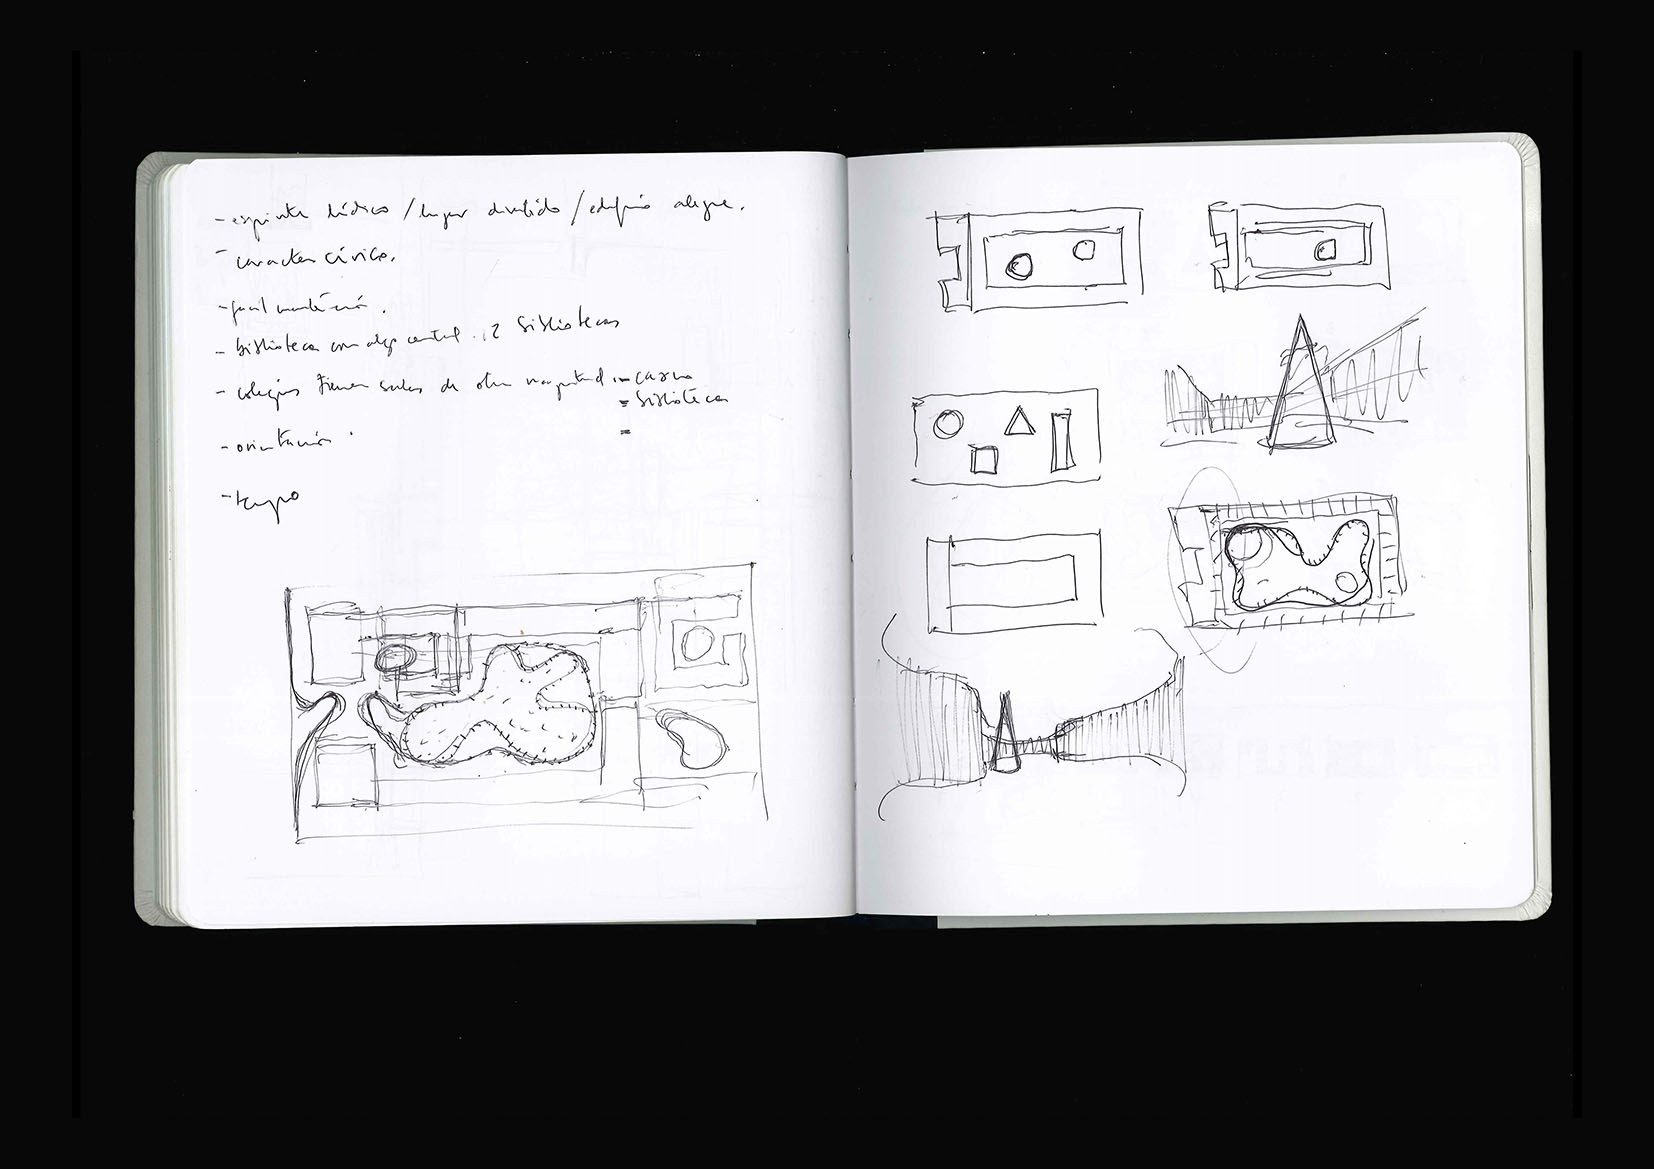 - espiritu lúdico / lugar divertido / edificio alegre.
- caracter cívico.
- facil mantención.
- biblioteca como algo central . 2 bibliotecas
- colegios tienen salas de otra magnitud . - casino
= bibliotecas
- orientación .
=
- tiempo